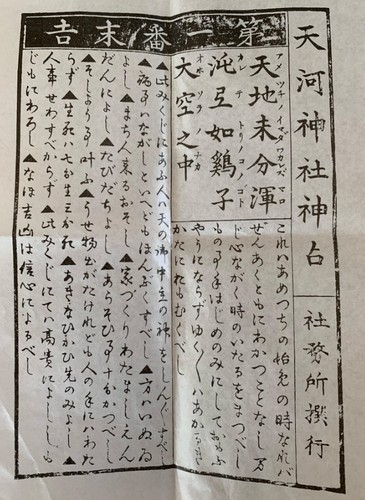 天河神社神占　社務所撰行
第一番末吉
天地未分渾
アメツチノイマダワカレズマロ
沌如鶏子
カレテトリノコノゴト
大空之中
オホゾラノナカ
これハあめつちの始めの時なれバ
ぜんあくともにわかつことなし 万
ど心ながく時のいたるをまつべし
もの事はじめのみにしておもふ
やうにならずゆく〳〵ハあかるき
かたにおもむくべし
▲此みくじにあふ人ハ天の御中主の神をしんずべし
▲病事ハながしといへどもほんぶくすべし ▲方ハいぬゐ
よし ▲まち人来るおそし ▲家づくりわたましえん
だんによし ▲たびだちよし ▲あらそひ事十分かつべし
▲そしよう事叶ふ ▲うせ物出がたけれども人の手にハわた
らず ▲生死ハ七分生三分死 ▲あきなひかひ先のみよし ▲
人事せわすべからず ▲此みくじにてハ高貴によししも
じもにわろし ▲なほ吉凶は信心によるべし